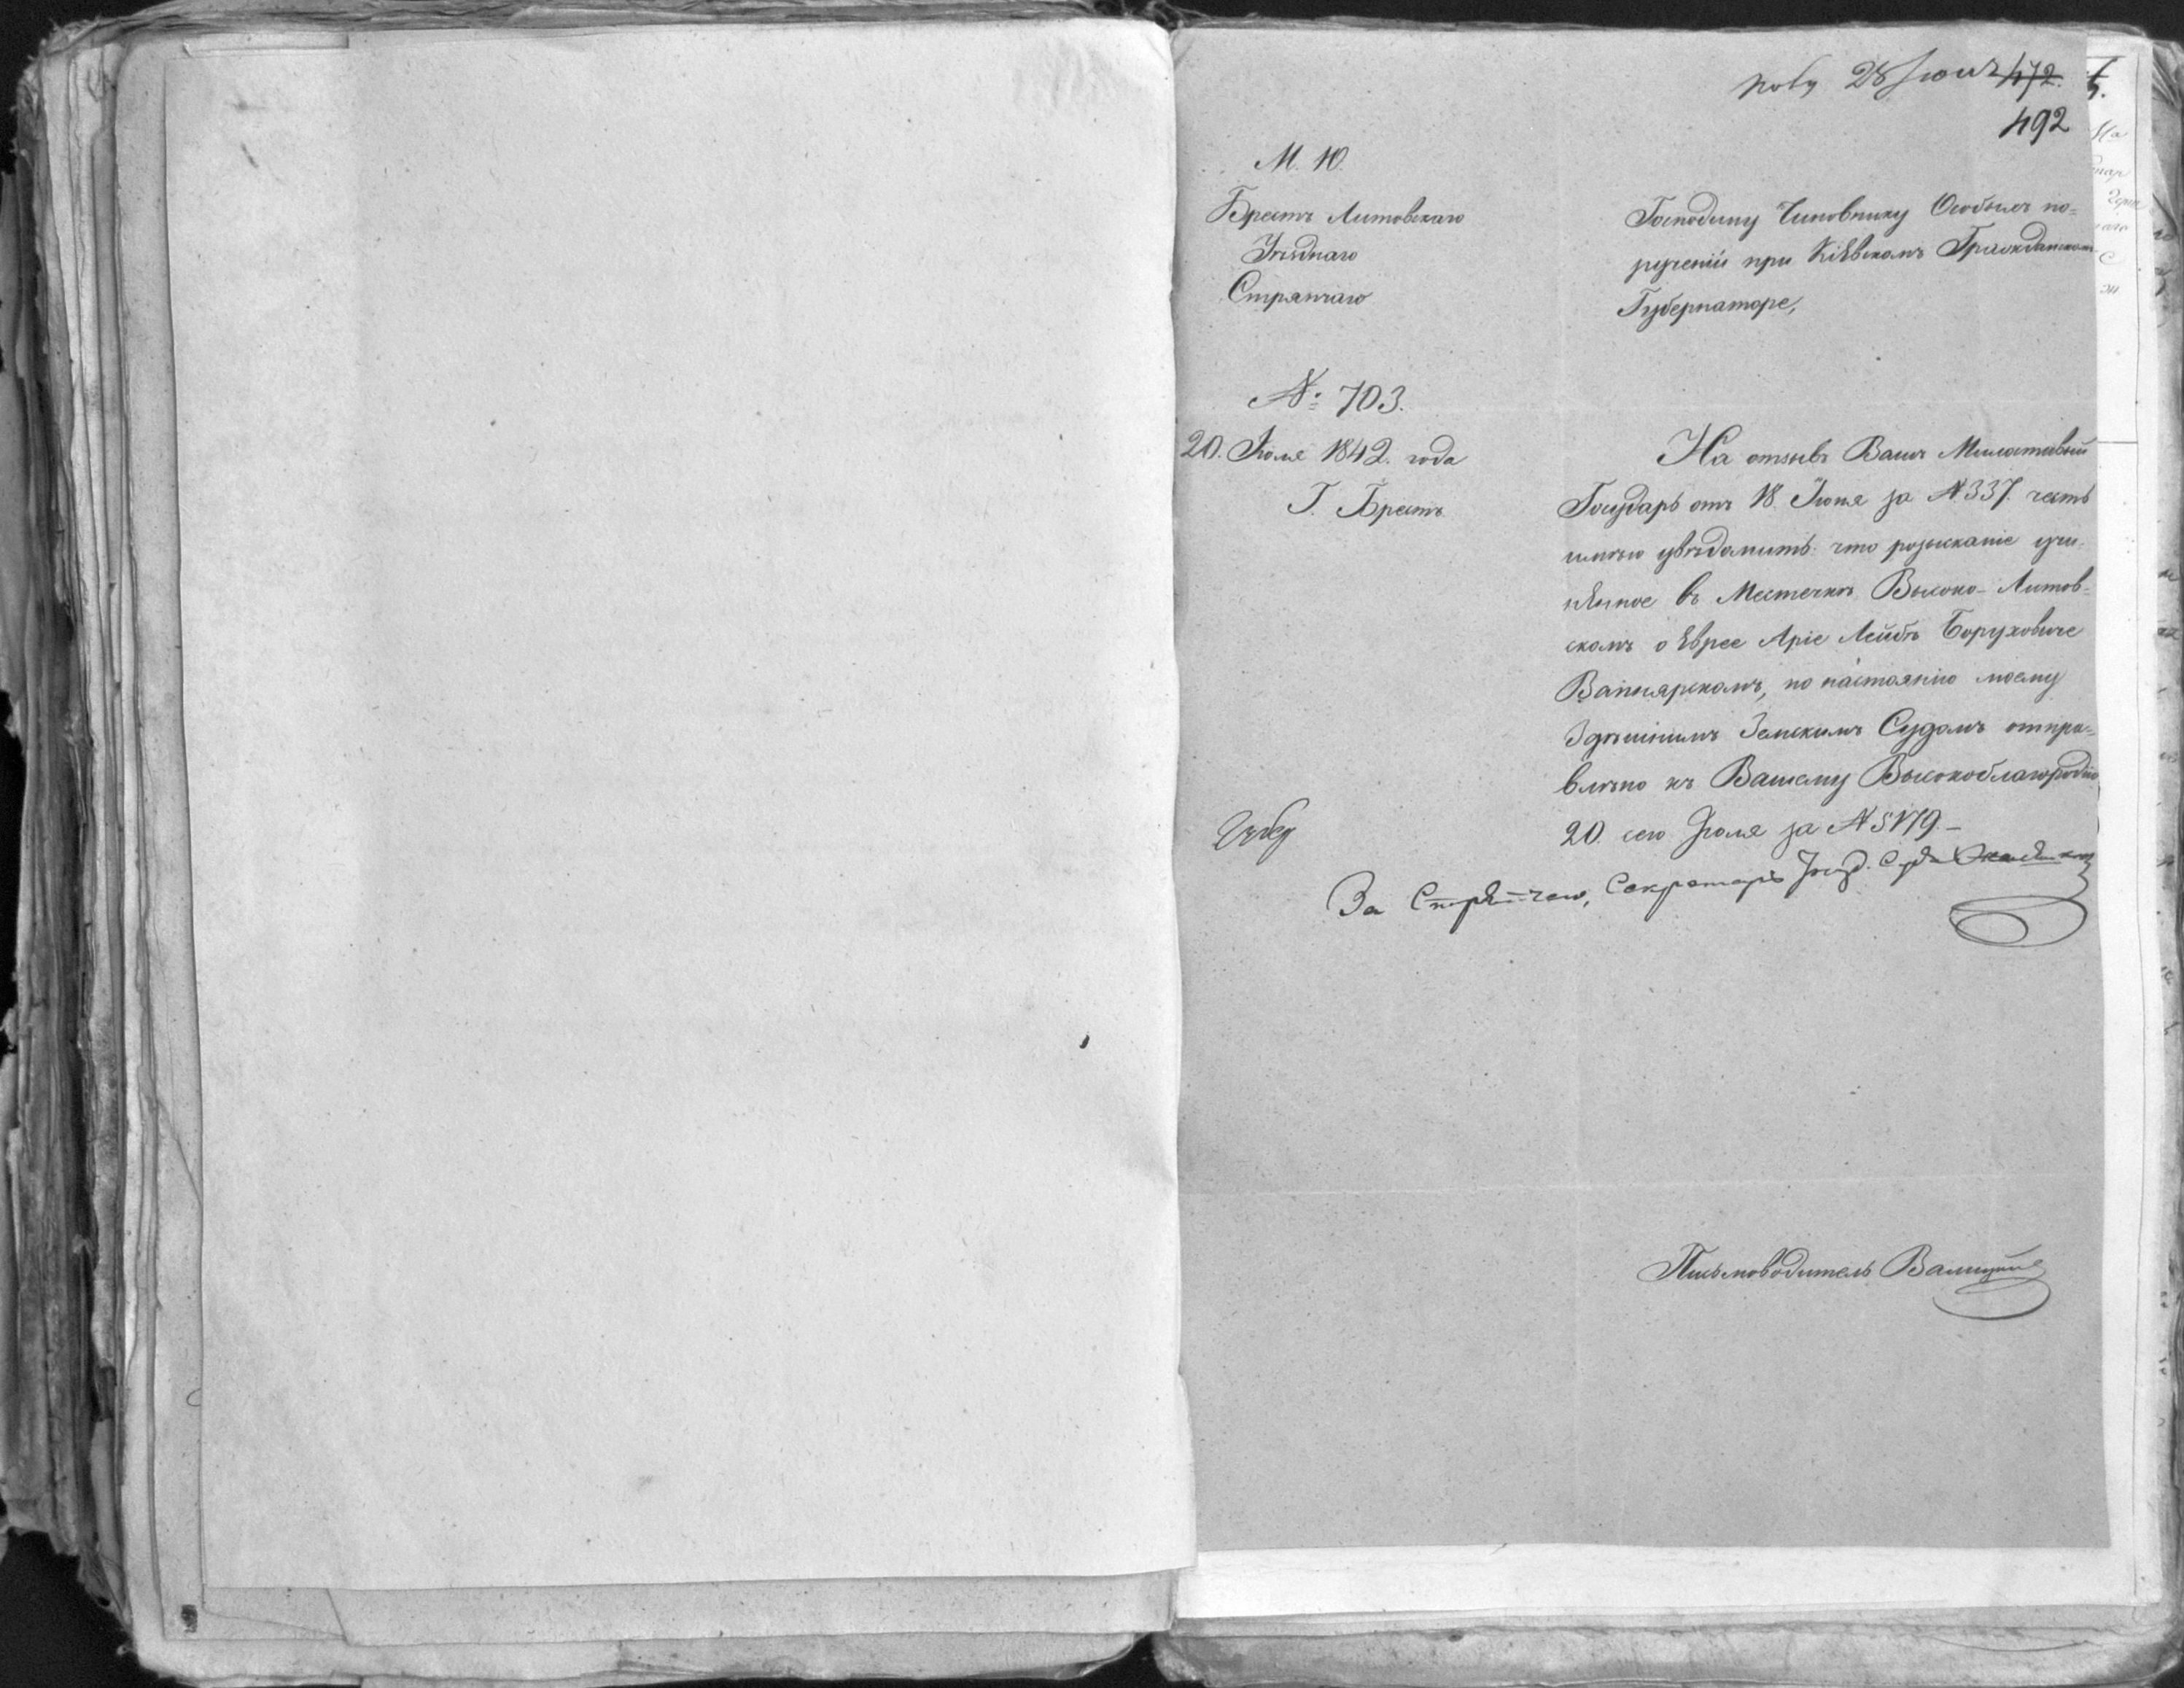 28 Іюля 472.
492
М. Ю.
Брестъ Литовскаго
Уѣзднаго
Стряпчаго
№: 703.
20. Іюля 1842. года
Г. Брестъ
Господину Чиновнику Особыхъ по=
рученій при Кіевскомъ Гражданскомъ
Губернаторе,
На отзывъ Вашъ Милостивый
Государь отъ 18 Іюня за №337. честь
имѣю увѣдомить: что розысканіе учи-
нѣнное въ Местечкѣ Высоко-Литов=
скомъ о Еврее Аріе Лейбѣ Боруховиче
Вапнярскомъ, по настоянію моему
Здѣшнимъ Земскимъ Судомъ отпра=
влѣно къ Вашему Высокоблагородію
20. сего Іюля за №5179.-
За Стряпчаго, Секретарь Уѣзд. Суда
Письмоводитель